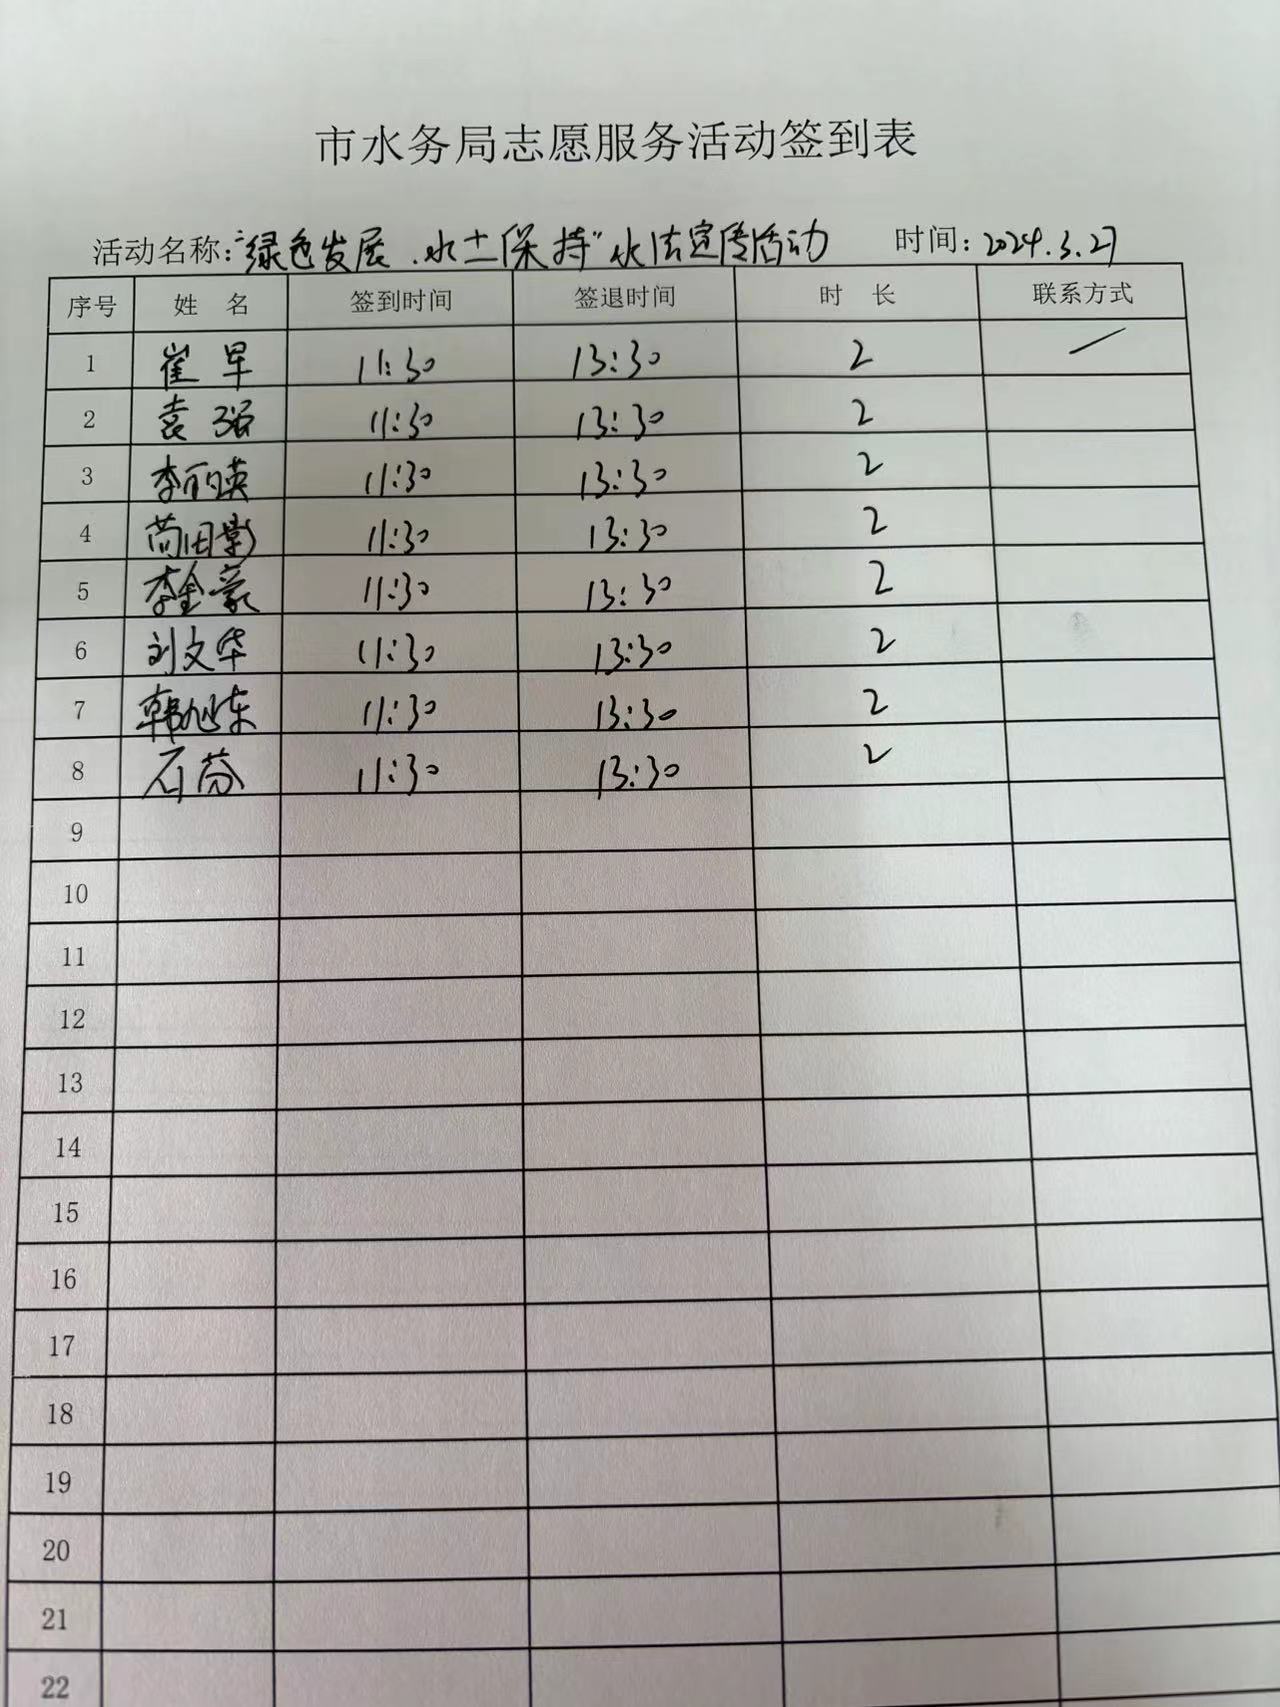 市水务局志愿服务活动签到表
活动名称:“绿色发展.水土保持”水法宣传活动 时间:2024.3.27
序号 姓 名 签到时间 签退时间 时 长 联系方式
1 崔早 11:30 13:30 2 /
2 袁强 11:30 13:30 2
3 李丽英 11:30 13:30 2
4 11:30 13:30 2
5 李金豪 11:30 13:30 2
6 刘文华 11:30 13:30 2
7 韩旭东 11:30 13:30 2
8 石芬 11:30 13:30 2
9
10
11
12
13
14
15
16
17
18
19
20
21
22